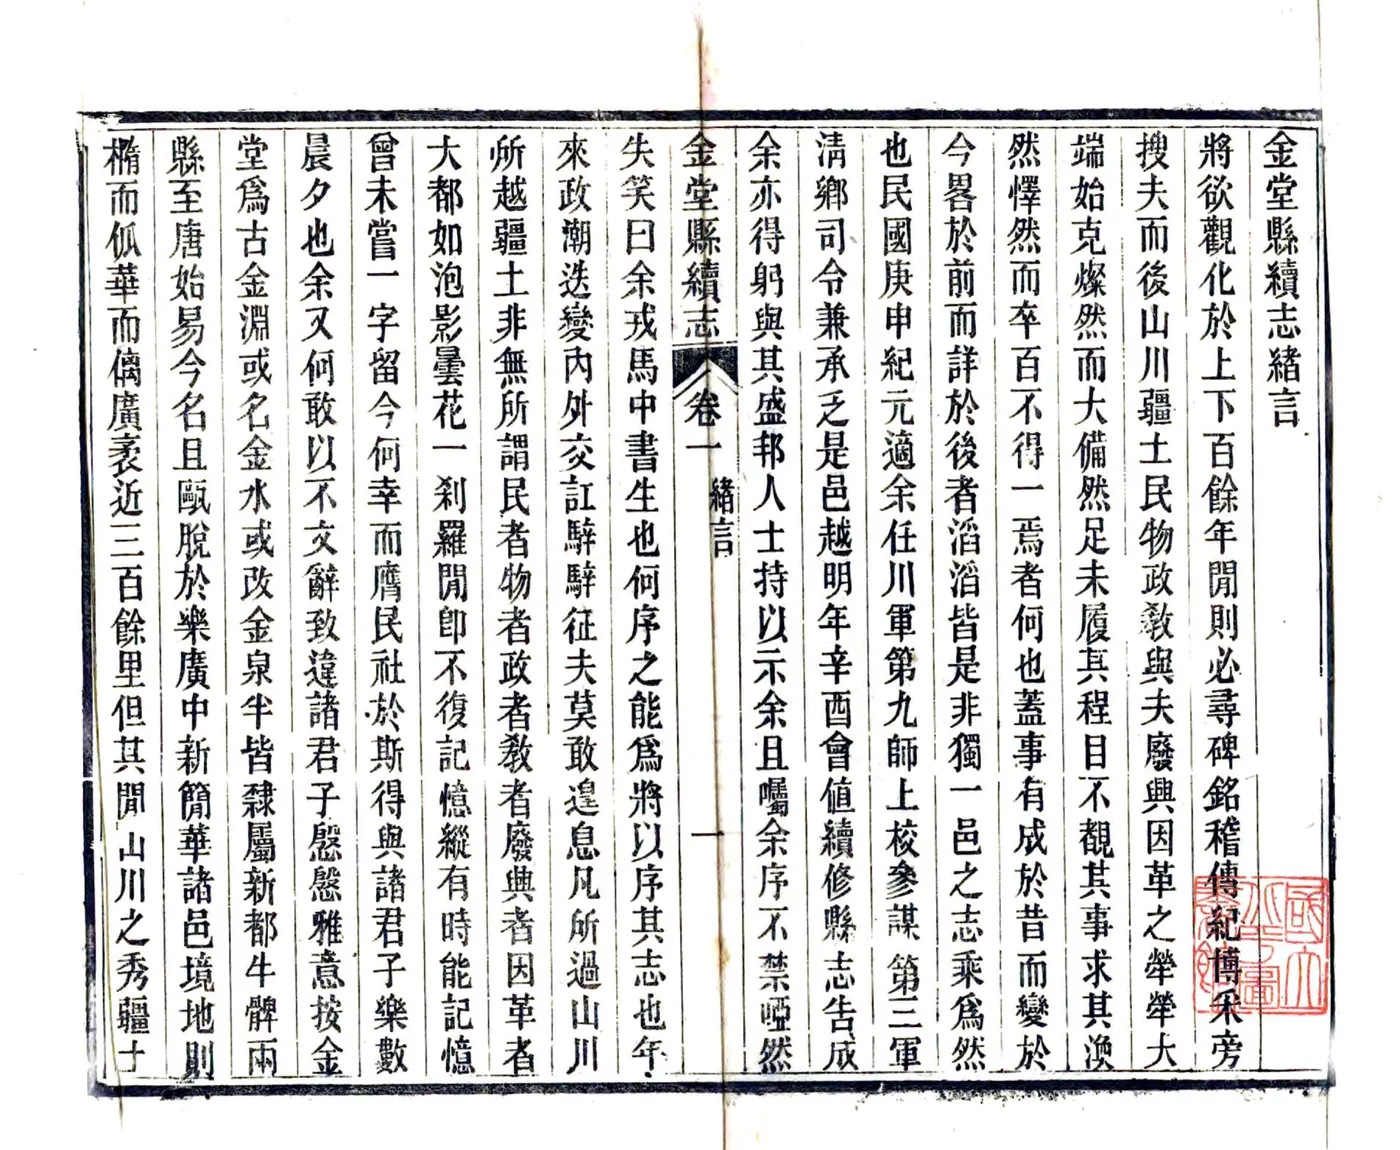 金堂縣續志緒言
將欲觀化於上下百餘年閒則必尋碑銘稽傳紀博采旁
搜夫而後山川疆土民物政教與夫廢興因革之犖犖大
端始克燦然而大備然足未履其程目不覩其事求其渙
然懌然而卒百不得一焉者何也蓋事有成於昔而變於
今畧於前而詳於後者滔滔皆是非獨一邑之志乘爲然
也民國庚申紀元適余任川軍第九師上校參謀第三軍
淸鄉司令兼承乏是邑越明年辛酉會值續修縣志告成
余亦得躬與其盛邦人士持以示余且囑余序不禁啞然
金堂縣續志
卷一
緒言
一
失笑曰余戎馬中書生也何序之能爲將以序其志也年
來政潮迭變內外交訌騂騂征夫莫敢遑息凡所過山川
所越疆土非無所謂民者物者政者敎者廢興者因革者
大都如泡影曇花一刹羅閒卽不復記憶縱有時能記憶
曾未嘗一字留今何幸而膺民社於斯得與諸君子樂數
晨夕也余又何敢以不文辭致違諸君子慇慇雅意按金
堂爲古金淵或名金水或改金泉半皆隸屬新都牛髀兩
縣至唐始易今名且甌脫於樂廣中新簡華諸邑境地則
橢而佤華而僑廣袤近三百餘里但其閒山川之秀疆土
國立北平圖